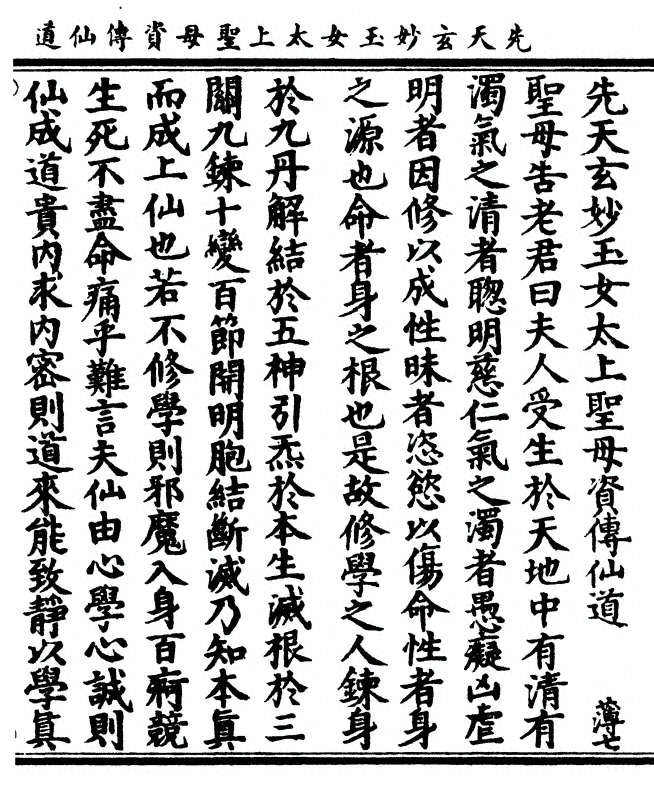 先天玄妙玉女太上聖母資傳仙道
先天玄妙玉女太上聖母資傳仙道 薄七
聖母告老君曰夫人受生於天地中有清有
濁氣之清者聰明慈仁氣之濁者愚癡凶虐
明者因修以成性昧者恣慾以傷命性者身
之源也命者身之根也是故修學之人鍊身
於九丹解結於五神引炁於本生滅根於三
關九鍊十變百節開明胞結斷滅乃知本眞
而成上仙也若不修學則邪魔入身百痾競
生死不盡命痛乎難言夫仙由心學心誠則
仙成道貴內求內密則道來能致靜以學眞